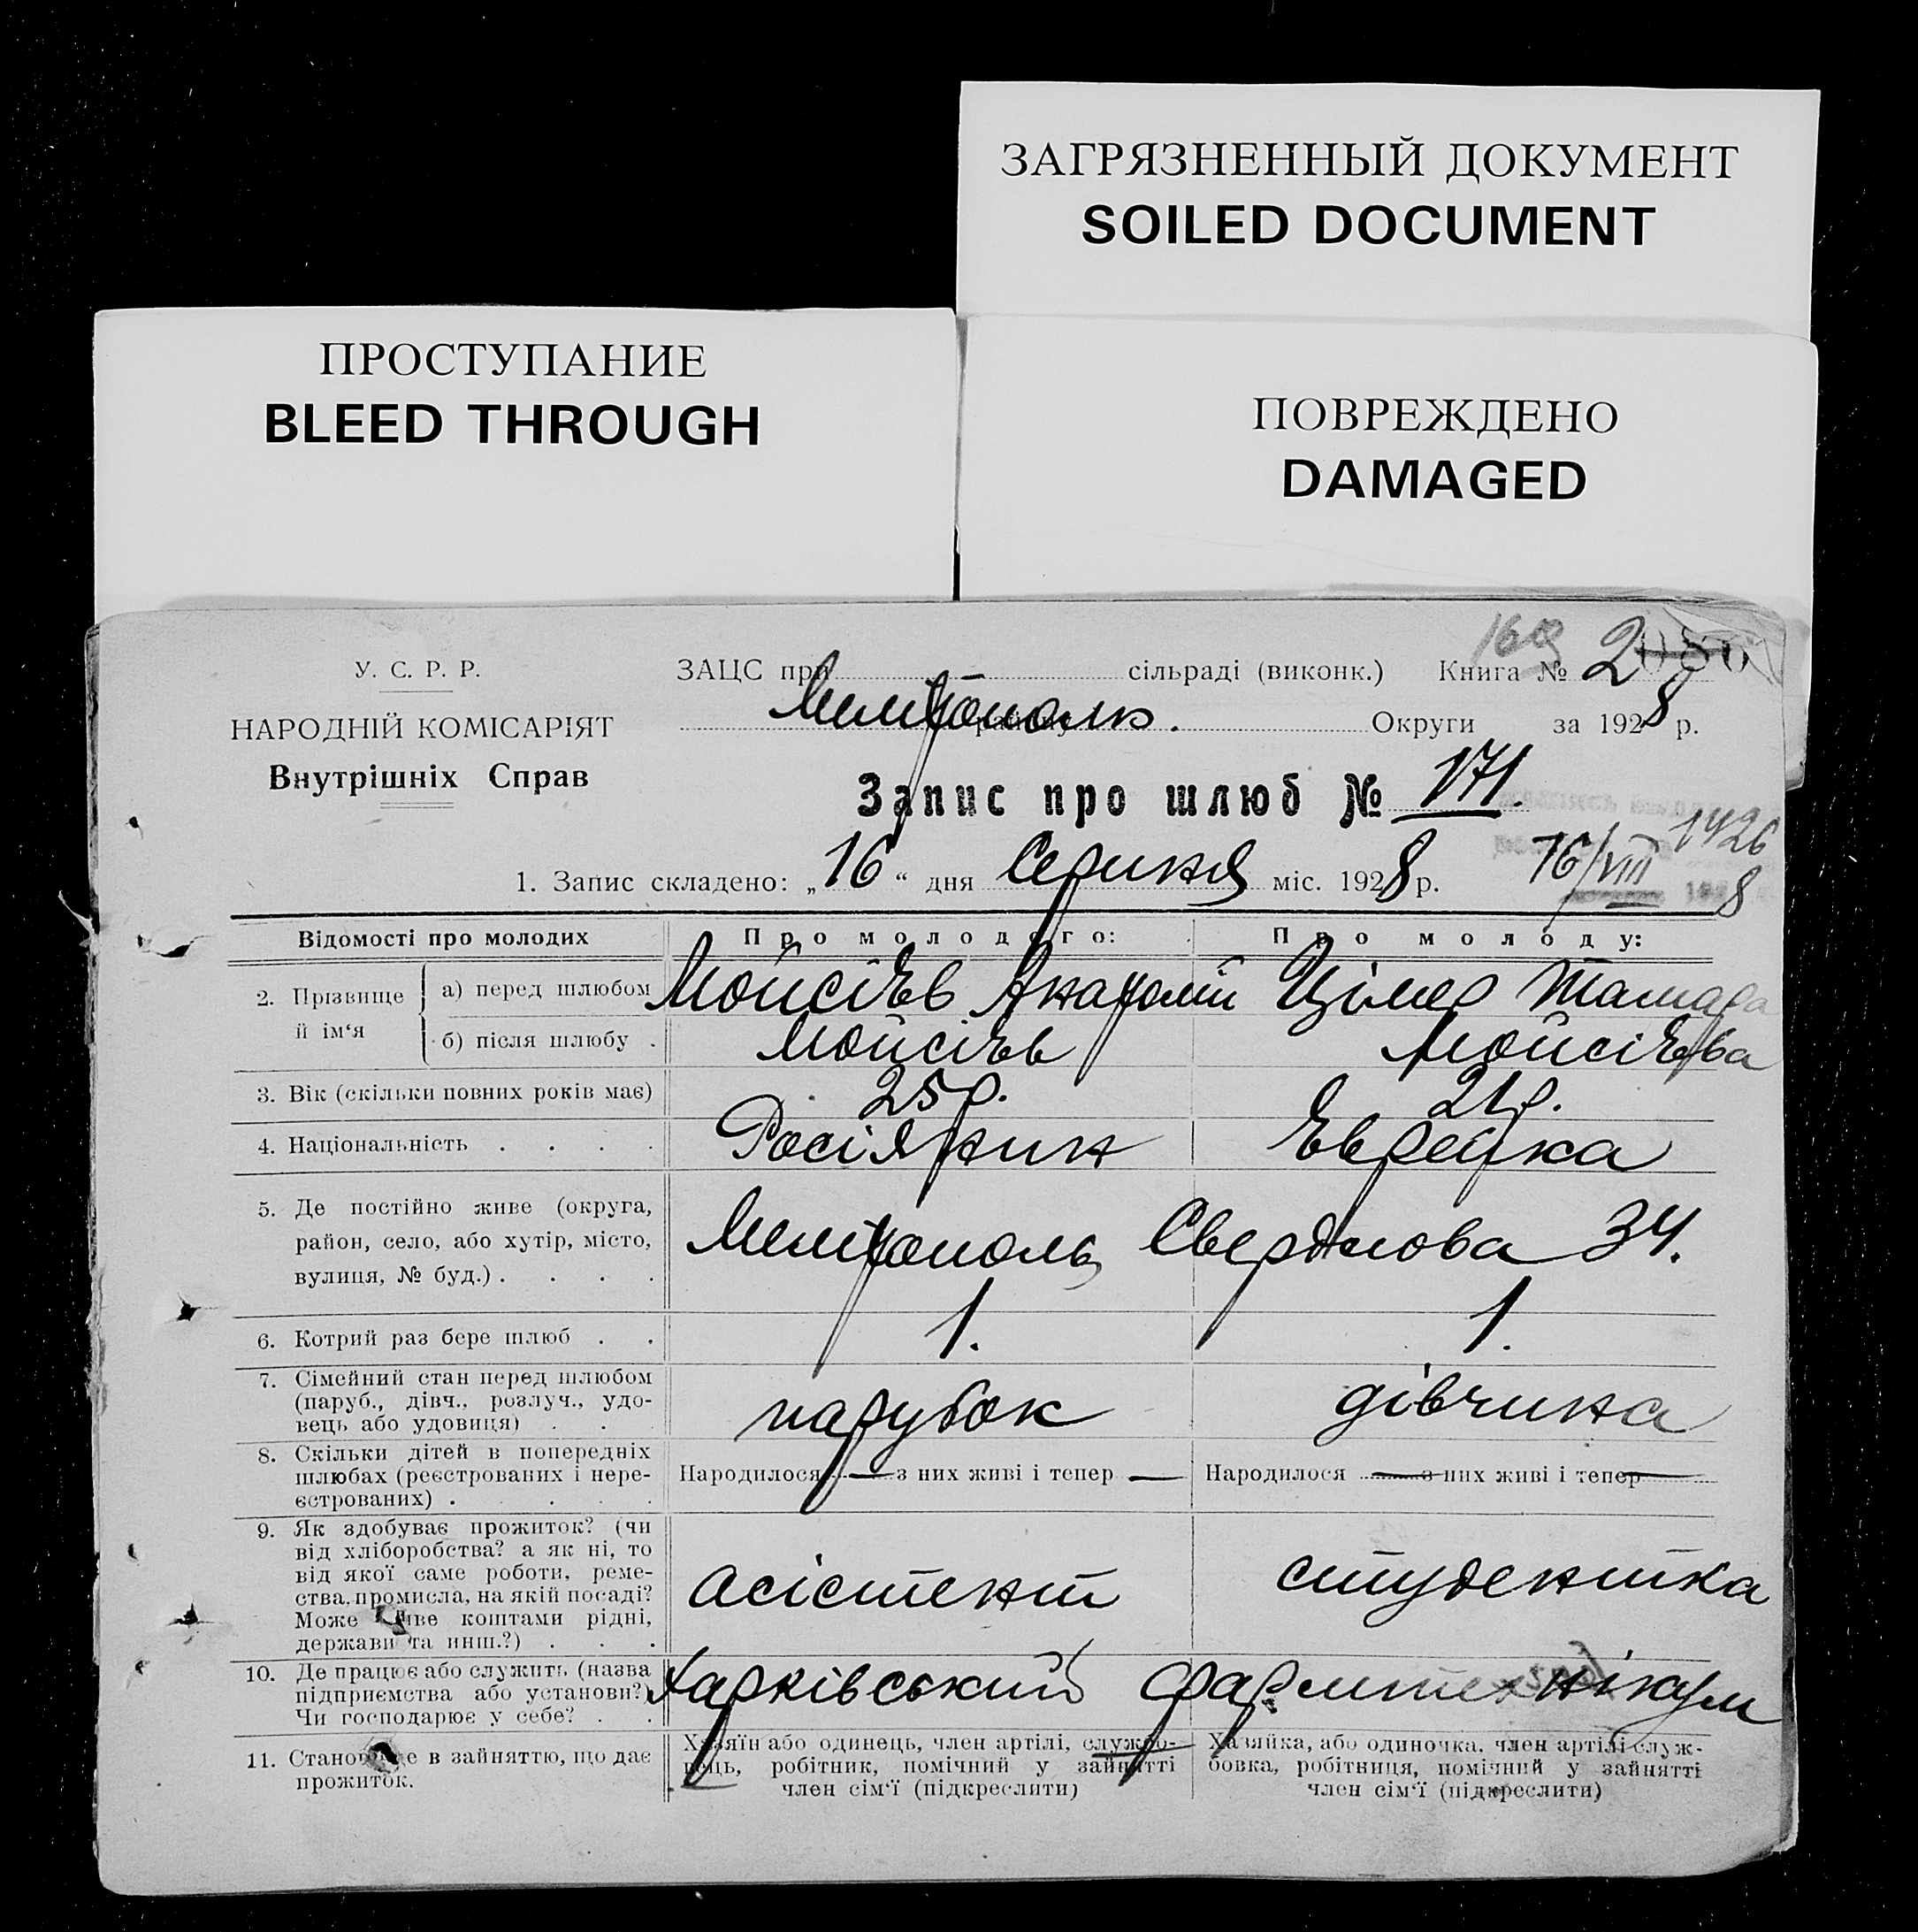 ЗАГРЯЗНЕННЫЙ ДОКУМЕНТ
SOILED DOCUMENT
ПРОСТУПАНИЕ
BLEED THROUGH
ПОВРЕЖДЕНО
DAMAGED
У. С. Р. Р.
НАРОДНІЙ КОМІСАРІЯТ
Внутрішніх Справ
ЗАЦС при сільраді (виконк.) Книга № 2
Мелітополь. району Округи за 1928 р.
Запис про шлюб № 171.
1. Запис складено: „16“ дня Серпня міс. 1928 р. 16/VIII 8
1426
Відомості про молодих
Про молодого:
Про молоду:
2. Прізвище й ім‘я
а) перед шлюбом Мойсієв Анатолій Цімер Тамара
б) після шлюбу . Мойсієв Мойсієва
3. Вік (скільки повних років має) 25 р. 21 р.
4. Національність . . . . Росіянин Єврейка
5. Де постійно живе (округа,
район, село, або хутір, місто,
вулиця, № буд.) . . . .
Мелітополь Свердлова 34.
6. Котрий раз бере шлюб . . 1. 1.
7. Сімейний стан перед шлюбом
(паруб., дівч., розлуч., удо-
вець або удовиця) . . .
парубок дівчина
8. Скільки дітей в попередніх
шлюбах (реєстрованих і нере-
єстрованих) . . . . .
Народилося — з них живі і тепер —
Народилося — з них живі і тепер —
9. Як здобуває прожиток? (чи
від хліборобства? а як ні, то
від якої саме роботи, реме-
ства, промисла, на якій посаді?
Може живе коштами рідні,
держави та инш.?) . . .
асістент студентка
10. Де працює або служить (назва
підприємства або установи?)
Чи господарює у себе? . .
Харківський фармтехнікум
11. Становище в зайняттю, що дає
прожиток.
Хазяїн або одинець, член артілі, службо-
вець, робітник, помічний у зайнятті
член сім‘ї (підкреслити)
Хазяйка, або одиночка, член артілі служ-
бовка, робітниця, помічний у зайнятті
член сім‘ї (підкреслити)